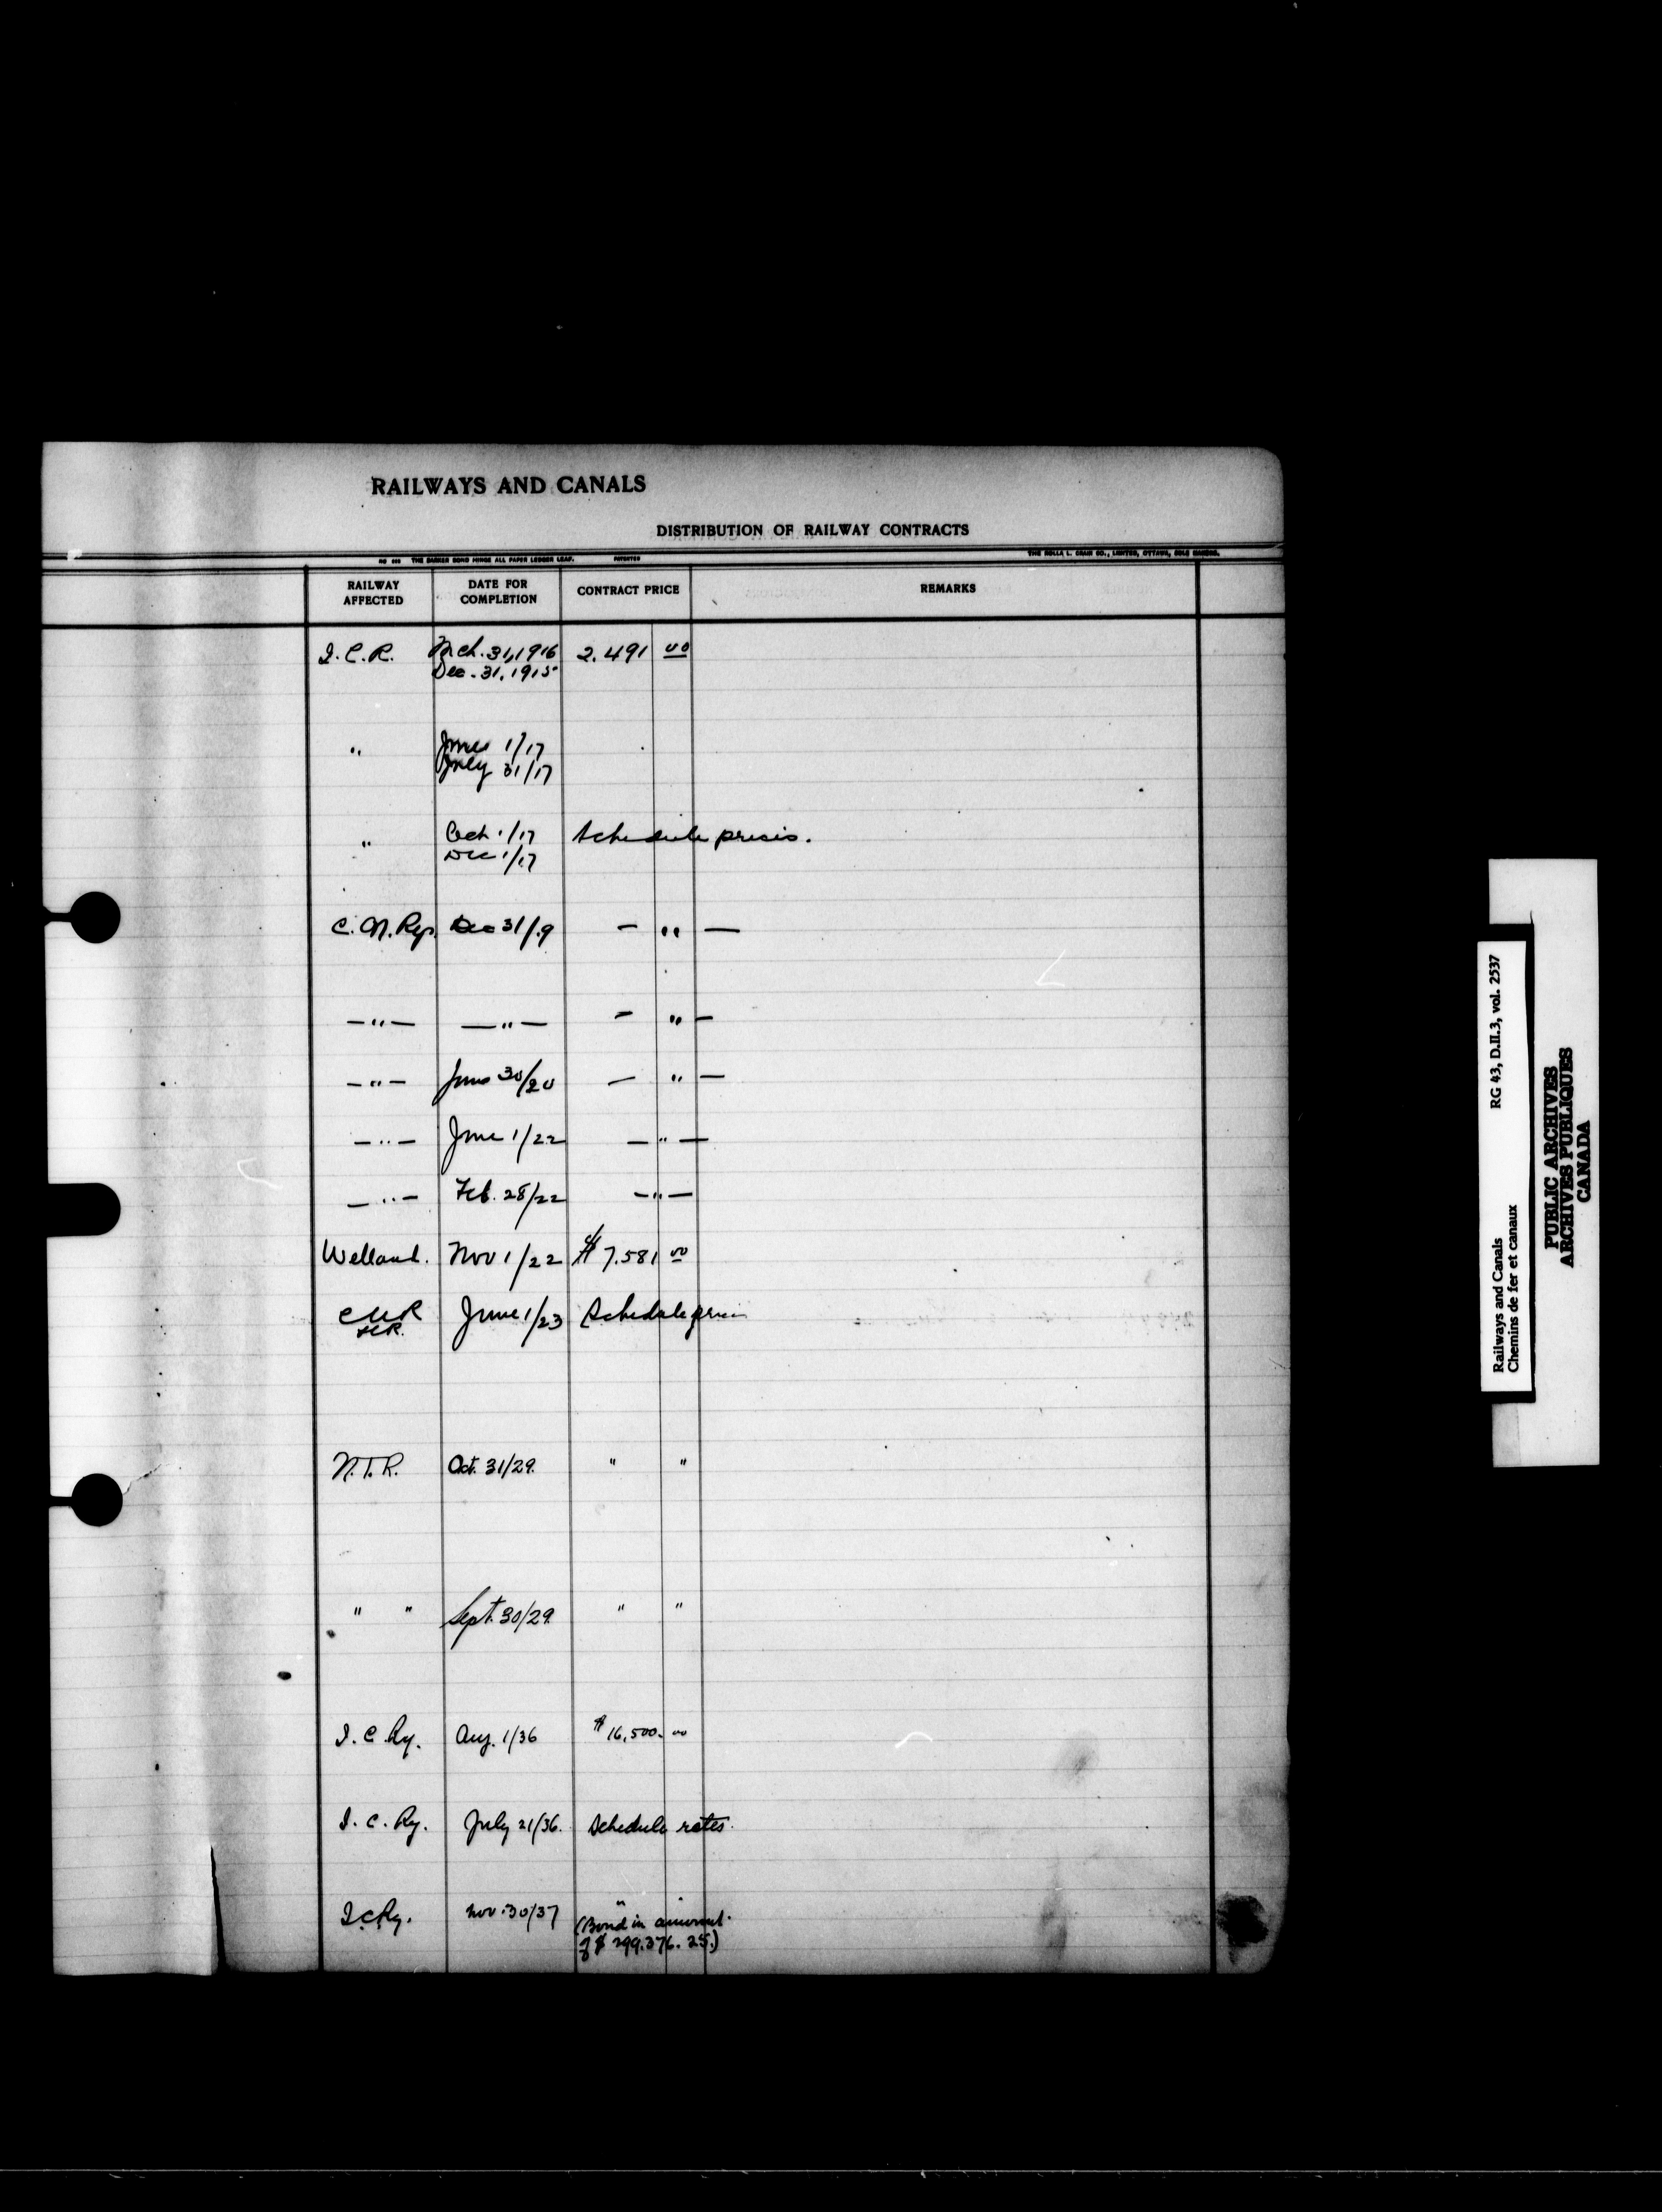 RAILWAYS AND CANALS
DISTRIBUTION OF RAILWAY CONTRACTS
THE BARKER BOND HINGE ALL PAPER LEDGER LEAF. PATENTED THE ROLLA L. CRAIN CO., LIMITED, OTTAWA, SOLE MAKERS.
RAILWAY AFFECTED DATE FOR COMPLETION CONTRACT PRICE REMARKS
I.C.R. Mch. 31, 1916 2.491 00
Dec. 31, 1915
" June 1/17
July 31/17
" Oct 1/17 Schedule prices.
Dec 1/17
C.N.Rys Dec 31/19 — " —
— " — — " — — " —
— " — June 30/20 — " —
— " — June 1/22 — " —
— " — Feb. 28/22 — " —
Welland. Nov 1/22 $7.581 00
June 1/23 Schedule prices
N.T.R. Oct. 31/29. " "
" " Sept. 30/29. " "
I.C.Ry. Aug. 1/36 $16,500. 00
I.C.Ry. July 21/36. Schedule rates.
I.C.Ry. Nov. 30/37 " "
(Bond in amount
of $299.376.25.)
RG 43, D.II.3, vol. 2537
Railways and Canals
Chemins de fer et canaux
PUBLIC ARCHIVES
ARCHIVES PUBLIQUES
CANADA